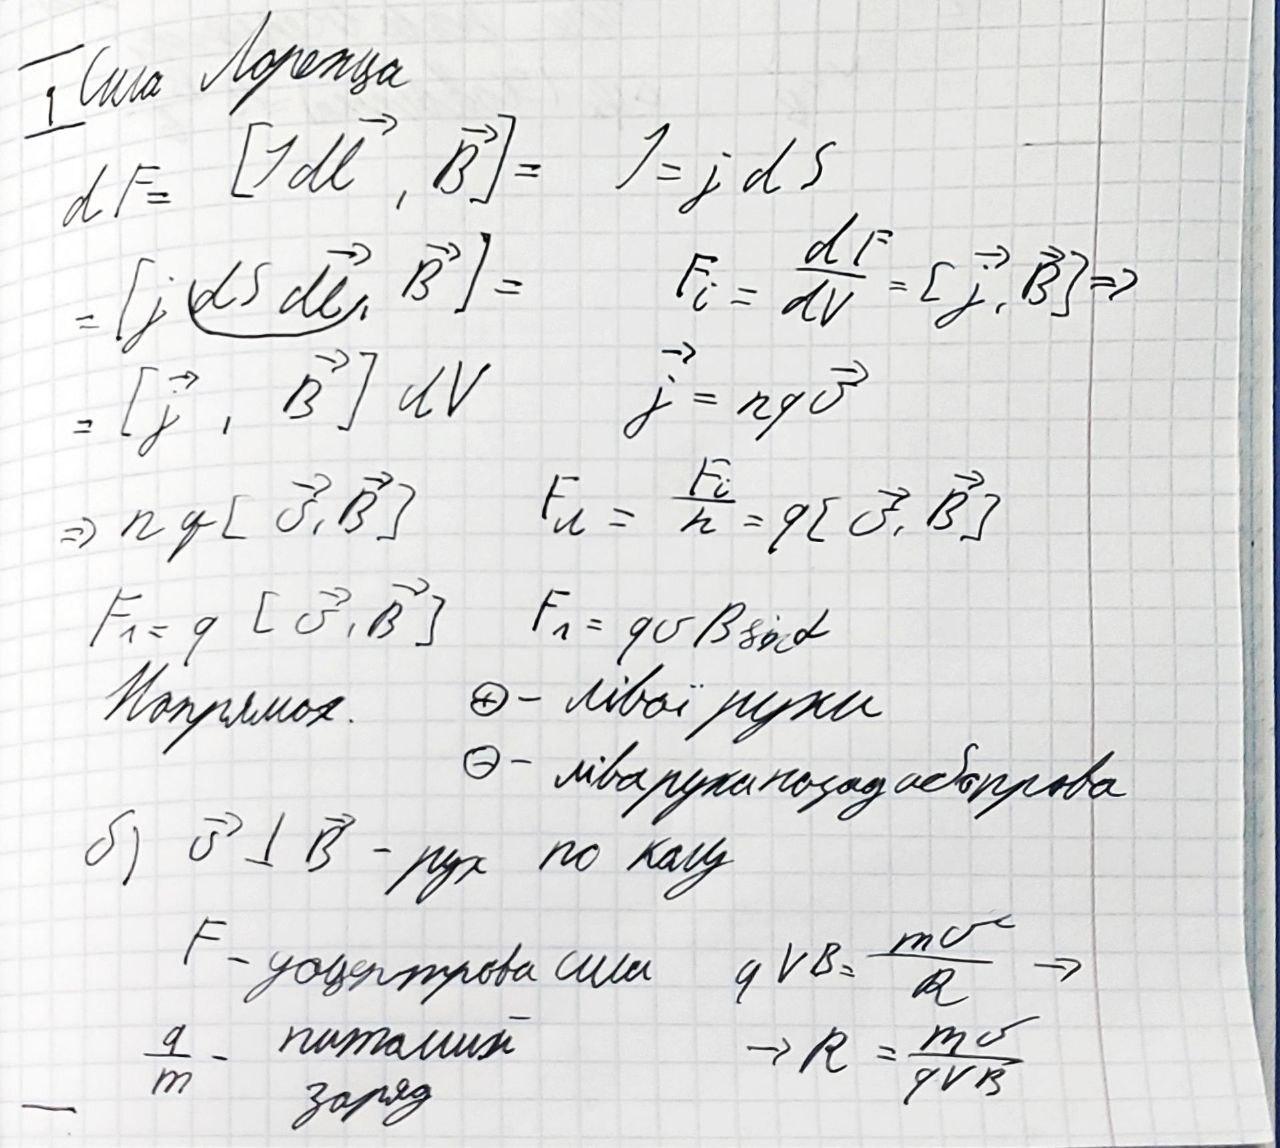 1 Сила Лоренца
dF = [I dl⃗, B⃗] = I = j dS
= [j dS dl⃗, B⃗] = Fᵢ = dF/dV = [j⃗, B⃗] =>
= [j⃗, B⃗] dV j⃗ = nqv⃗
=> nq[v⃗, B⃗] Fл = Fᵢ/n = q[v⃗, B⃗]
Fл = q [v⃗, B⃗] Fл = qvB sinα
Напрямок. ⊕ - лівої руки
⊖ - ліва рука назад або права
б) v⃗ ⊥ B⃗ - рух по колу
F - доцентрова сила qVB = mv²/R →
q/m - питомий заряд → R = mv/qVB